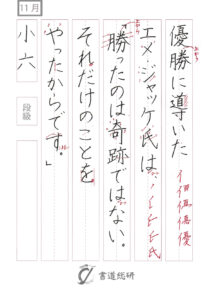 11月
優勝に導いた
エメ・ジャッケ氏は、
「勝ったのは奇跡ではない。
それだけのことを
やったからです。」
小六
段級
書道総研